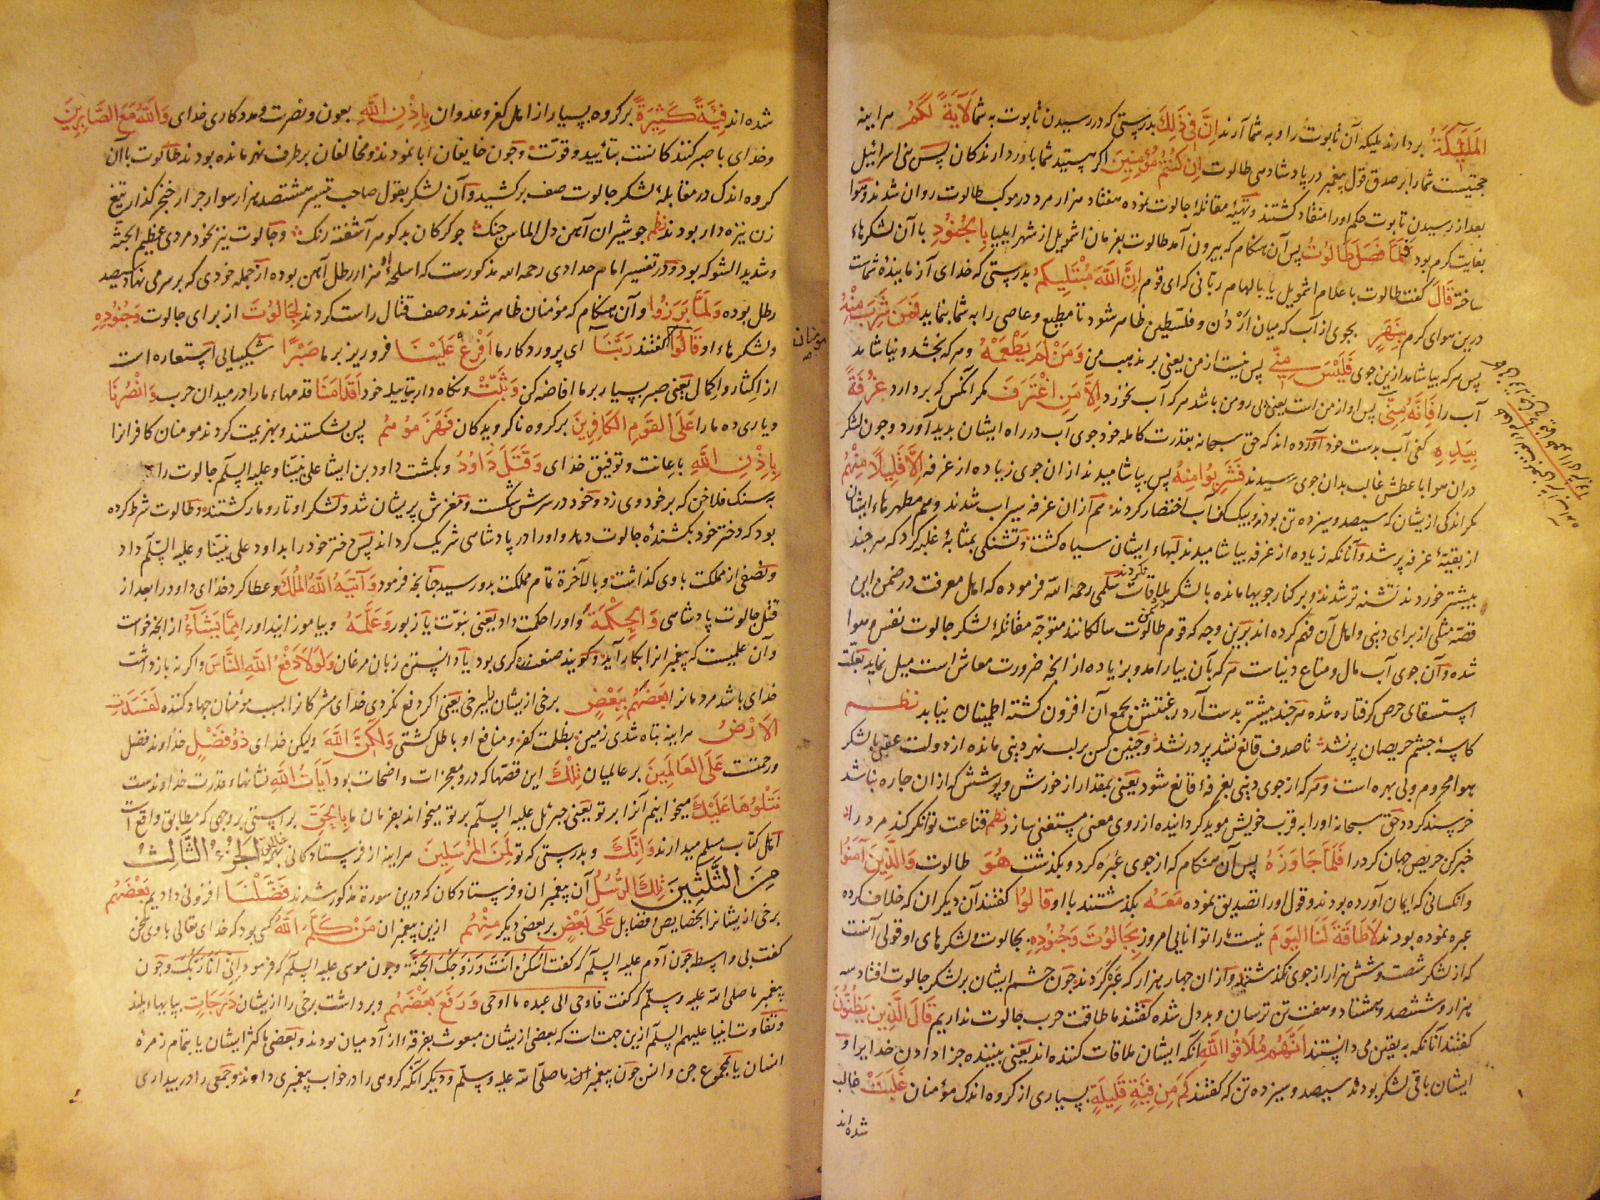 الْمَلَآئِكَةُ بردارند ملیکه آن تابوت را و به شما آرند اِنَّ فِی ذٰلِكَ بدرستی که در رسیدن تابوت به شما لَآیَةً لَكُمْ هر آینه
حجتیست شما را بر صدق قول پیغمبر در پادشاهی طالوت اِنْ كُنْتُمْ مُؤْمِنِینَ اگر هستید شما باور دارندکان پس بنی اسرائیل
بعد از رسیدن تابوت حکم او را منقاد کشتند و تهیّه مقاتلهٔ جالوت نموده هفتاد هزار مرد در موکب طالوت روان شدند و هوا
بغایت کرم بود فَلَمَّا فَصَلَ طَالُوتُ پس آن هنکام که بیرون آمد طالوت بفرمان اشمویل از شهر ایلیا بِالْجُنُودِ با آن لشکرهاء
ساخته قَالَ کفت طالوت باعلام اشمویل یا بالهام ربانی که ای قوم اِنَّ اللّٰهَ مُبْتَلِیكُمْ بدرستی که خدای آزماینده شماست
درین هوای کرم بِنَهَرٍ بجوی از آب که میان اردن و فلسطین ظاهر شود تا مطیع و عاصی را به شما نماید فَمَنْ شَرِبَ مِنْهُ
پس هر که بیاشامد ازین جوی فَلَیْسَ مِنِّی پس نیست از من یعنی بر مذهب من وَمَنْ لَمْ یَطْعَمْهُ و هر که نچشد و نیاشامد
آب را فَاِنَّهُ مِنِّی پس او از من است یعنی ولی و من باشد هر که آب نخورد اِلَّا مَنِ اغْتَرَفَ مکر آنکس که بردارد غُرْفَةً
بِیَدِهِ کفی آب بدست خود آورده اند که حق سبحانه بقدرت کامله خود جوی آب در راه ایشان بدید آورد و چون لشکر
دران هوا با عطش غالب بدان جوی رسیدند فَشَرِبُوا مِنْهُ پس بیاشامیدند ازان جوی زیاده از غرفه اِلَّا قَلِیلًا مِنْهُمْ
مکر اندکی از یشان که سیصد و سیزده تن بودند و بیک کف آب اختصار کردند هم از ان غرفه سیراب شدند و هم مطهرهاء ایشان
از بقیّهٔ غرفه پر شد و آنانکه زیاده از غرفه بیاشامیدند لبهاء ایشان سیاه کشت و تشنکی بمثابهٔ غلبه کرد که هر چند
بیشتر خوردند تشنه تر شدند و بر کنار جوی بها مانده با لشکر ملاقات نکردند سلمی رحمه الله فرموده که اهل معرفت در ضمن این
قصّه مثلی از برای دنیی و اهل آن فهم کرده اند برین وجه که قوم طالوت سالکانند متوجّه مقاتلهٔ لشکر جالوت نفس و هوا
شده و آن جوی آب مال و متاع دنیاست هر که بآن بیارامد و زیاده از انچه ضرورت معاش است میل نماید بعلّت
استسقای حرص کرفتار شده هر چند بیشتر بدست آرد رغبتش بجمع آن افزون کشته اطمینان نیابد نظم
کاسهٔ چشم حریصان پر نشد تا صدف قانع نشد پر در نشد و چنین کس بر لب نهر دنیی مانده از دولت عقبی با لشکر
هوا محروم و بی بهره است و هر که از جوی دنیی بغرفهٔ قانع شود یعنی بمقدار از خورش و پوشش که از ان چاره نباشد
خرسند کردد حق سبحانه او را به قرب خویش موید کردانیده از روی معنی مستغنی سازد نظم قناعت توانکر کند مرد را
خبر کن حریص جهان کرد را فَلَمَّا جَاوَزَهُ پس آن هنکام که از جوی عبره کرد و بکذشت هُوَ طالوت وَالَّذِینَ آمَنُوا
و انکسانی که ایمان آورده بودند و قول او را تصدیق نموده مَعَهُ بکذشتند با او قَالُوا کفتند آن دیکران که خلاف کرده
عبره نموده بودند لَا طَاقَةَ لَنَا الْیَوْمَ نیست ما را توانایی امروز بِجَالُوتَ وَجُنُودِهِ بجالوت و لشکرهای او قولی آنست
که از لشکر شصت و شش هزار از جوی نکذشتند و از ان چهار هزار که عبره کردند چون چشم ایشان بر لشکر جالوت افتاد سه
هزار و ششصد و هشتاد و هفت تن ترسان و بد دل شده کفتند ما طاقت حرب جالوت نداریم قَالَ الَّذِینَ یَظُنُّونَ
کفتند آنانکه به یقین می دانستند اَنَّهُمْ مُلَاقُوا اللّٰهِ آنکه ایشان ملاقات کننده اند یعنی بیننده جزا دادن خدایرا و
ایشان باقی لشکر بودند سیصد و سیزده تن که کفتند كَمْ مِنْ فِئَةٍ قَلِیلَةٍ بسیاری از کروه اندک مؤمنان غَلَبَتْ غالب
شده اند
شده اند فِئَةً كَثِیرَةً بر کروه بسیار از اهل کفر و عدوان بِاِذْنِ اللّٰهِ بعون و نصرت و مددکاری خدای وَاللّٰهُ مَعَ الصَّابِرِینَ
و خدای با صبر کنندکانست بتأیید و قوّت و چون خایفان ابا نمودند و مخالفان بر طرف نهر مانده بودند طالوت با آن
کروه اندک در مقابلهٔ لشکر جالوت صف بر کشید و آن لشکر بقول صاحب تیسیر هشتصد هزار سوار جرار خنجر کذار تیغ
زن نیزه دار بودند نظم چو شیران آهن دل الماس چنک چو کرکان بد کوهر آشفته رنک و جالوت نیز خود مردی عظیم الجثّه
و شدید الشوکه بود و در تفسیر امام حدادی رحمه الله مذکورست که اسلحهٔ او هزار رطل آهن بوده از جمله خودی که بر سر می نهاد سیصد
رطل بوده وَلَمَّا بَرَزُوا و آن هنکام که مؤمنان ظاهر شدند و صف قتال راست کردند لِجَالُوتَ از برای جالوت وَجُنُودِهِ
و لشکرهاء او قَالُوا کفتند رَبَّنَا ای پروردکار ما اَفْرِغْ عَلَیْنَا فرو ریز بر ما صَبْرًا شکیبایی استعاره است
مؤمنان
از اکثار و اکمال یعنی صبر بسیار بر ما افاضه کن وَثَبِّتْ و نکاه دار بتأیید خود اَقْدَامَنَا قدمهاء ما را در میدان حرب وَانْصُرْنَا
و یاری ده ما را عَلَى الْقَوْمِ الْكَافِرِینَ بر کروه ناکرویدکان فَهَزَمُوهُمْ پس بشکستند و بهزیمت کردند مومنان کافرانرا
بِاِذْنِ اللّٰهِ باعانت و توفیق خدای وَقَتَلَ دَاوُدُ و بکشت داود بن ایشا علی نبیّنا و علیه السلم جالوت را
بسنک فلاخن که بر خود وی زد و خود در سرش شکست و مغزش پریشان شد و لشکر او تار و مار کشتند و طالوت شرط کرده
بود که دختر خود بکشندهٔ جالوت دهد و او را در پادشاهی شریک کرداند پس دختر خود را بداود علی نبیّنا و علیه السلم داد
و نصفی از مملکت باوی کذاشت و بالآخرة تمام مملکت بدو رسید چنانچه فرمود وَآتٰیهُ اللّٰهُ الْمُلْكَ و عطا کرد خدای داود را بعد از
قتل جالوت پادشاهی وَالْحِكْمَةَ و او را حکمت داد یعنی نبوّت یا زبور وَعَلَّمَهُ و بیاموزانید او را مِمَّا یَشَآءُ از انچه خواست
و آن علمیست که پیغمبرانرا بکار آید و کویند صنعت زره کری بود یا دانستن زبان مرغان وَلَوْلَا دَفْعُ اللّٰهِ النَّاسَ و اکر نه بازداشت
خدای باشد مردمانرا بَعْضَهُمْ بِبَعْضٍ برخی از یشان ببرخی یعنی اکر دفع نکردی خدای مشرکانرا بسبب مؤمنان جهاد کننده لَفَسَدَتِ
الْاَرْضُ هر آینه تباه شدی زمین بظلمت کفر و منافع او باطل کشتی وَلٰكِنَّ اللّٰهَ ولیکن خدای ذُو فَضْلٍ خداوند فضل
و رحمتست عَلَى الْعَالَمِینَ بر عالمیان تِلْكَ این قصّها که در و معجزات واضحات بود آیَاتُ اللّٰهِ نشانهاء قدرت خداوندست
نَتْلُوهَا عَلَیْكَ میخوانیم آنرا بر تو یعنی جبرئیل علیه السلم بر تو میخواند بفرمان ما بِالْحَقِّ براستی بر وجهی که مطابق واقع است
اهل کتاب مسلم میدارند وَاِنَّكَ و بدرستی که تو لَمِنَ الْمُرْسَلِینَ هر آینه از فرستادکانی الْجُزْءُ الثَّالِثُ
مِنَ الثَّلٰثِینَ تِلْكَ الرُّسُلُ آن پیغمبران و فرستادکان که درین سورة مذکور شدند فَضَّلْنَا افزونی دادیم بَعْضَهُمْ
برخی از یشانرا بخصایص و فضایل عَلٰى بَعْضٍ بر بعضی دیکر مِنْهُمْ ازین پیغمبران مَنْ كَلَّمَ اللّٰهُ کسی بود که خدای تعالی باوی سخن
کفت بی واسطه چون آدم علیه السلم که کفت اُسْكُنْ اَنْتَ وَزَوْجُكَ الْجَنَّةَ و چون موسی علیه السلم که فرمود اِنِّی اَنَا رَبُّكَ و چون
پیغمبر ما صلی الله علیه وسلم که کفت فاوحی الی عبده ما اوحی وَرَفَعَ بَعْضَهُمْ و برداشت برخی را از یشان دَرَجَاتٍ بپایهاء بلند
و تفاوت انبیا علیهم السلم ازین جهت است که بعضی از یشان مبعوث بفرقهٔ از آدمیان بودند و بعضی باکثر ایشان یا بتمام زمرهٔ
انسان یا بمجموع جن و انس چون پیغمبر ما صلی الله علیه وسلم و دیکر آنکه کروهی را در خواب پیغمبری دادند و جمعی را در بیداری